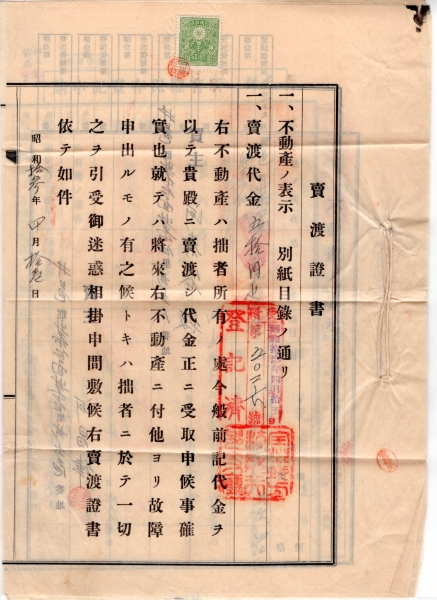 賣渡證書
一、不動產ノ表示　別紙目錄ノ通リ
一、賣渡代金 五拾円也
右不動產ハ拙者所有ノ處今般前記代金ヲ
以テ貴殿ニ賣渡シ代金正ニ受取申候事確
實也就テハ將來右不動產ニ付他ヨリ故障
申出ルモノ有之候トキハ拙者ニ於テ一切
之ヲ引受御迷惑相掛申間敷候右賣渡證書
依テ如件
昭和拾參年四月拾 日
登記濟
第五〇二六號